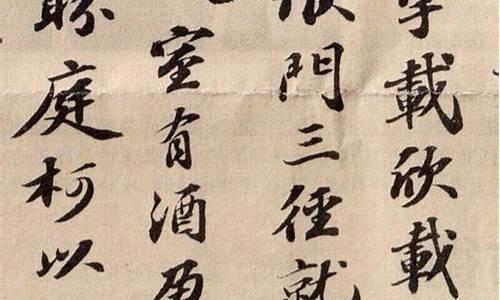 宇載欣載
門三徑就
室有酒
庭柯以